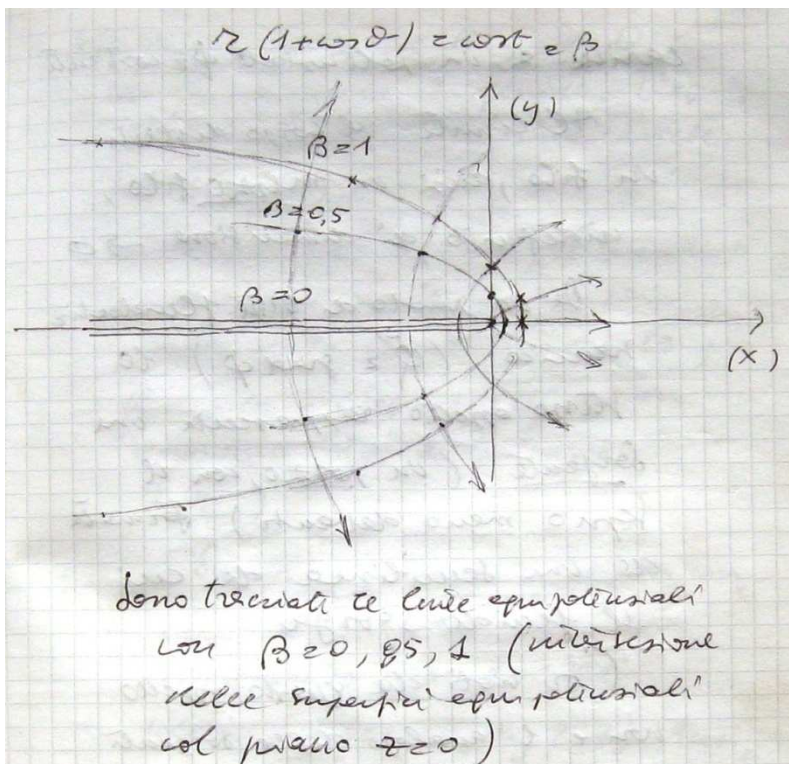 r (1+cosθ) = cost = β
(y)
β=1
β=0,5
β=0
(x)
Sono tracciate le linee equipotenziali
con β=0, 0,5, 1 (intersezione
delle superfici equipotenziali
col piano z=0)